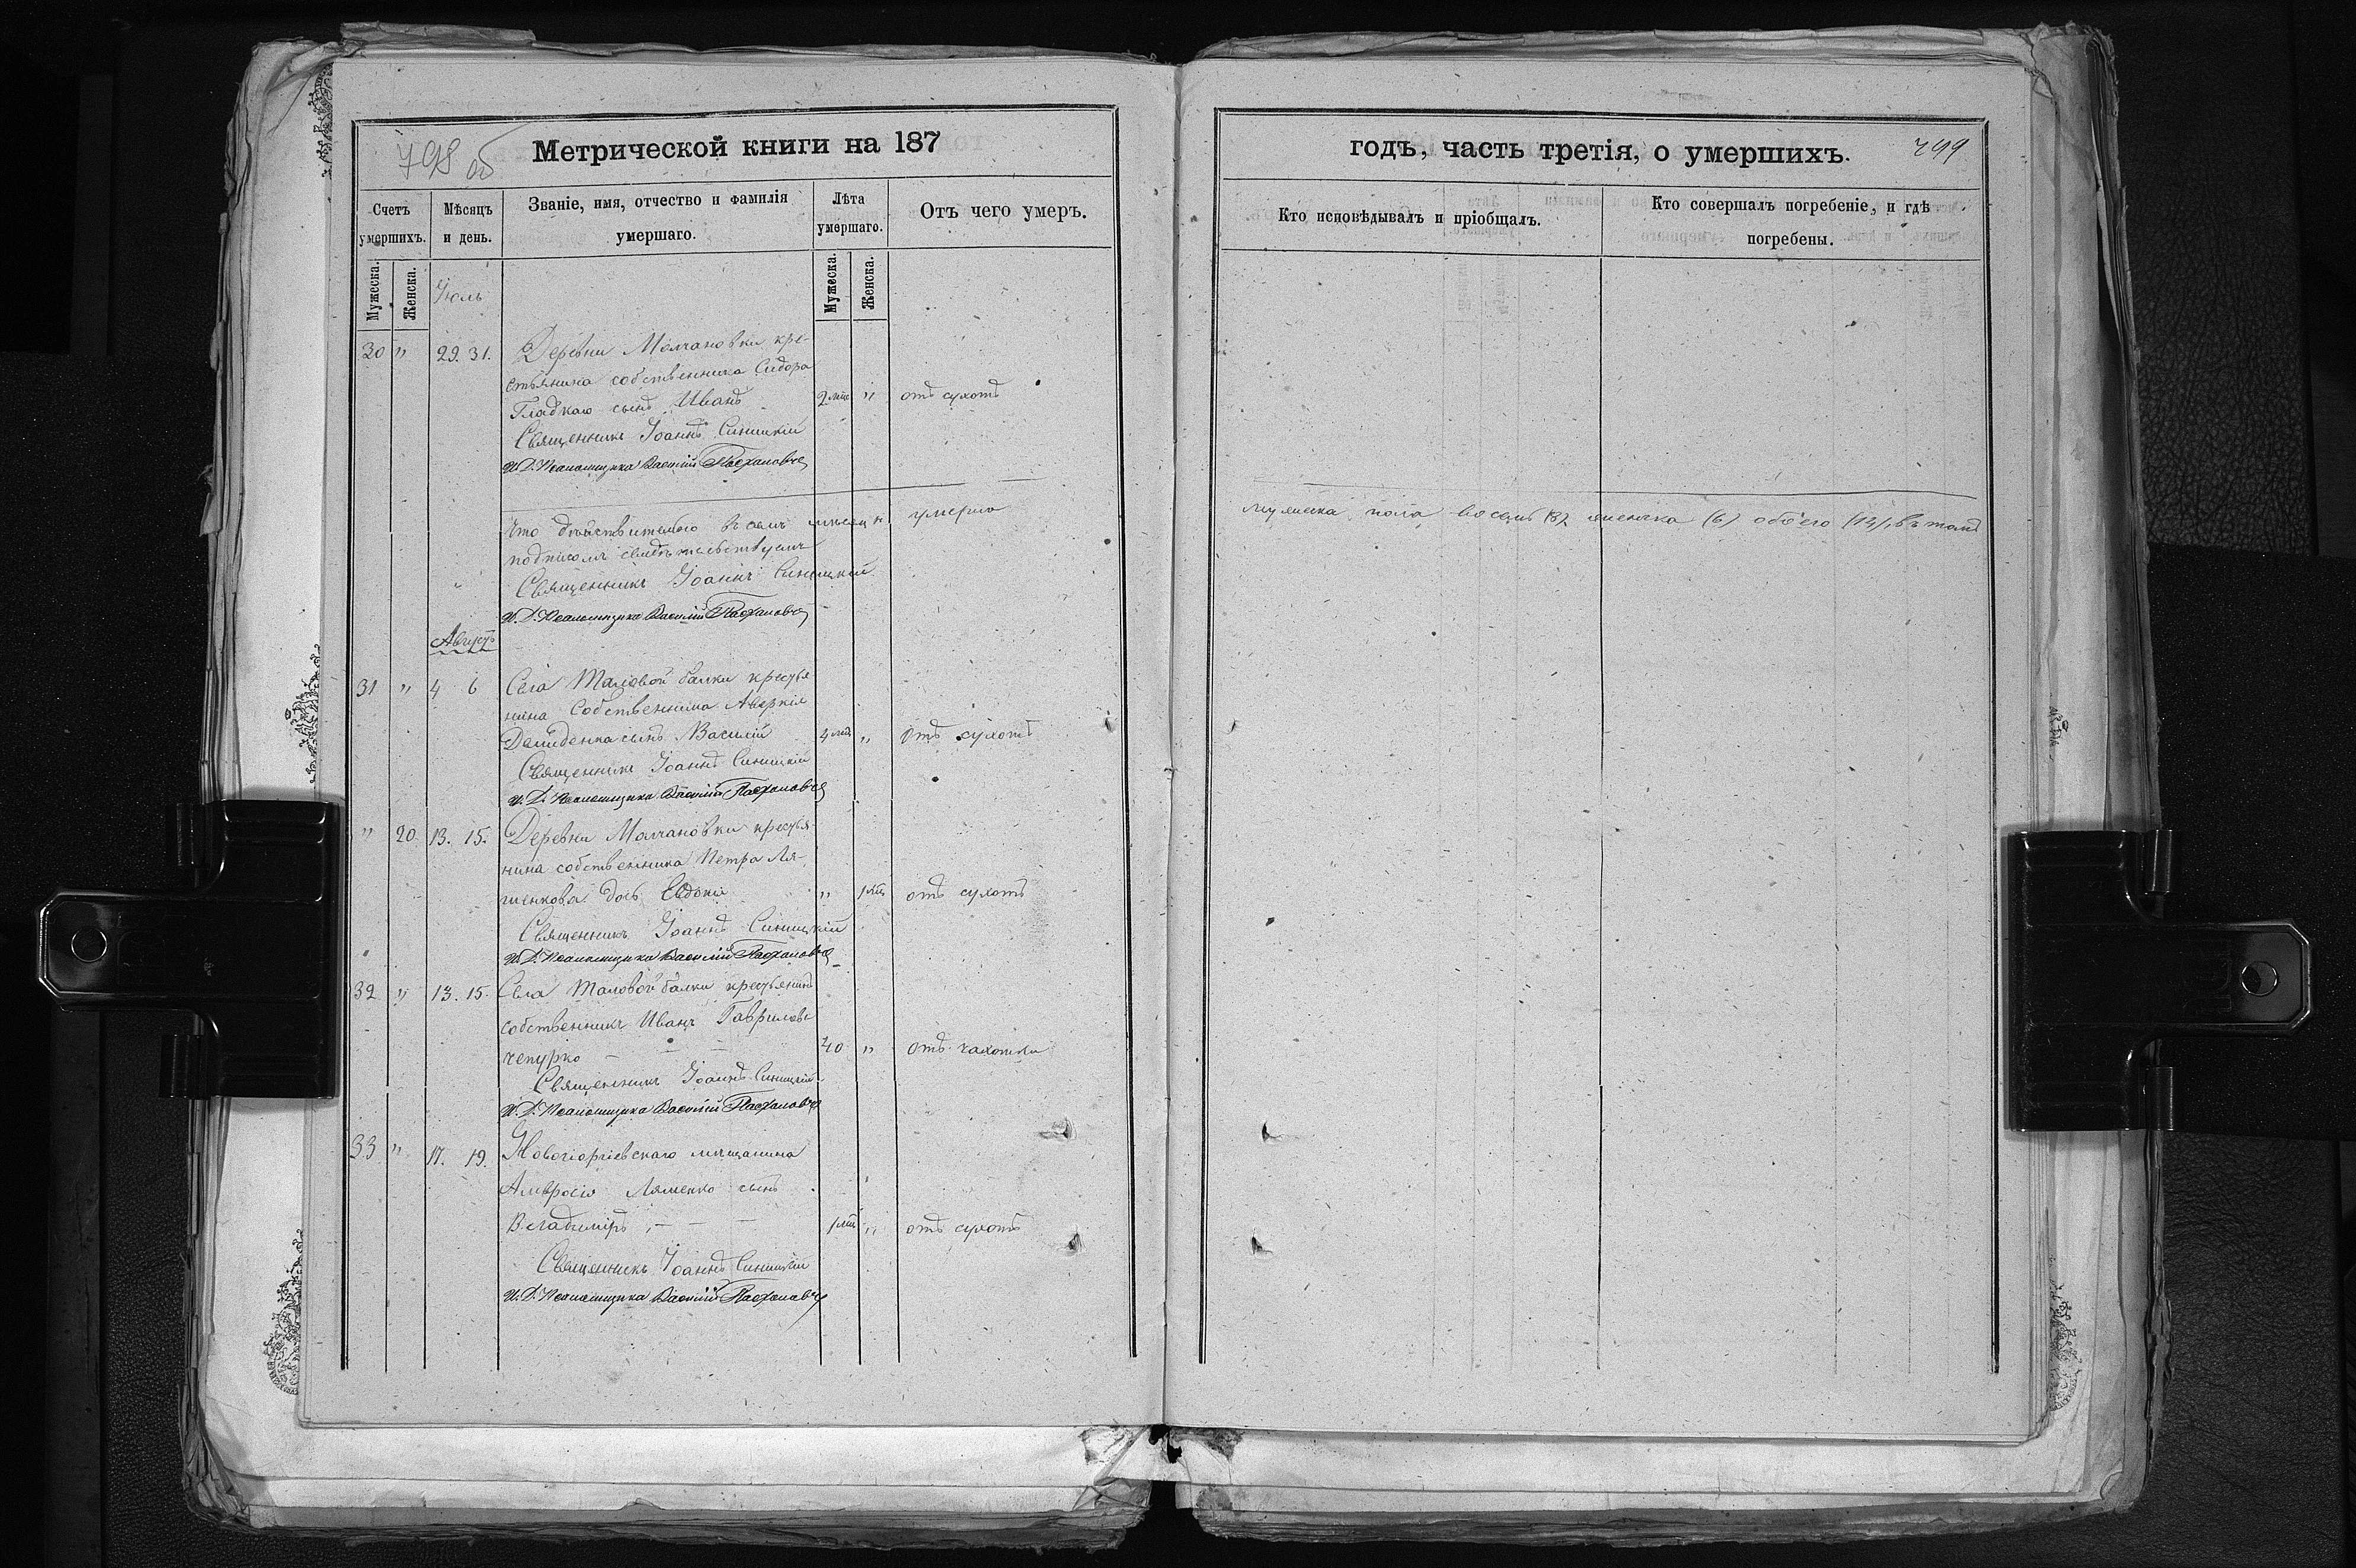 798 об
Метрической книги на 187
Счетъ умершихъ.
Мѣсяцъ и день.
Званіе, имя, отчество и фамилія умершаго.
Лѣта умершаго.
Отъ чего умеръ.
Мужеска.
Женска.
Іюль
Мужеска.
Женска.
30 " 29. 31. Деревни Молчановки кре-
стьянина собственника Сидора
Гладкаго сынъ Иванъ 2 " отъ сухотъ
Священникъ Іоаннъ Синицкій
И. Д. Псаломщика Василій
Что дѣйствительно въ семъ мѣсяцѣ умерло
подписомъ свидѣтельствуемъ
Священникъ Іоаннъ Синицкій
И. Д. Псаломщика Василій
Августъ
31 " 4 6 Села Таловой балки крестья
нина собственника Аверкія
Демиденка сынъ Василій 4 " отъ сухотъ
Священникъ Іоаннъ Синицкій
И. Д. Псаломщика Василій
" 20 13. 15. Деревни Молчановки крестья-
нина собственника Петра Ля-
шенкова дочь Евдокія " отъ сухотъ
Священникъ Іоаннъ Синицкій
И. Д. Псаломщика Василій
32 " 13. 15. Села Таловой балки крестьянинъ
собственникъ Иванъ Гавриловъ
Чепурко — — — 40 " отъ чахотки
Священникъ Іоаннъ Синицкій
И. Д. Псаломщика Василій
33 " 17. 19. Новогеоргіевскаго мѣщанина
Амвросія Ляшенко сынъ
Владиміръ — — — " отъ сухотъ
Священникъ Іоаннъ Синицкій
И. Д. Псаломщика Василій
годъ, часть третія, о умершихъ.
799
Кто исповѣдывалъ и пріобщалъ.
Кто совершалъ погребеніе, и гдѣ погребены.
мужеска пола восемь (8), женска (6) обоего (14), въ томъ